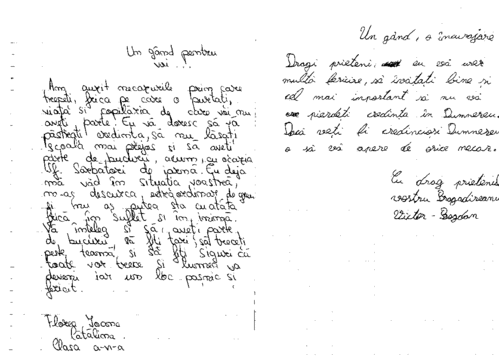 Un gând pentru
voi...
Am auzit necazurile prin care
treceți, frica pe care o purtați,
viața și copilăria de care voi nu
aveți parte. Eu vă doresc să vă
păstrați credința, să nu lăsați
școala mai prejos și să aveți
parte de bucurii, acum, cu ocazia
Sf. Sărbători de iarnă. Eu deja
mă văd în situația voastră,
m-aș descurca extraordinar de greu
și nu aș putea sta cu atâta
frică în suflet și în inimă.
Vă înțeleg și să aveți parte
de bucurii, să fiți tari, să treceți
peste teamă, și să fiți siguri că
toate vor trece și lumea va
deveni iar un loc pașnic și
fericit.
Florea Ioana
Cătălina
Clasa a-VI-a
Un gând, o încurajare
Dragi prieteni, eu vă urez
multă fericire, să învățați bine și
cel mai important să nu vă
pierdeți credința în Dumnezeu.
Dacă veți fi credincioși Dumnezeu
o să vă apere de orice necaz.
Cu drag prietenul
vostru Bragadireanu
Victor-Bogdan